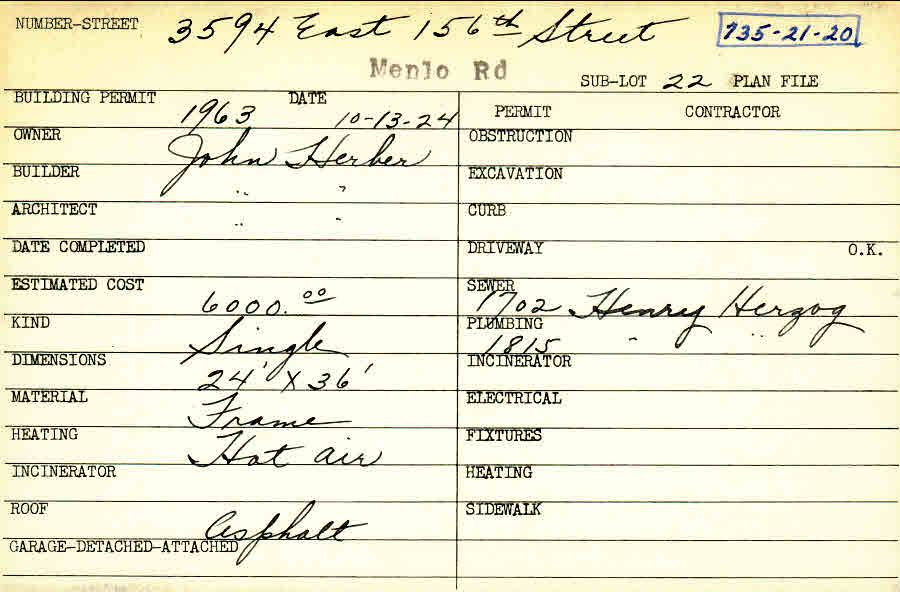 NUMBER-STREET 3594 East 156th Street 735-21-20
Menlo Rd
SUB-LOT 22 PLAN FILE
BUILDING PERMIT 1963 DATE 10-13-24
PERMIT CONTRACTOR
OWNER John Herber
OBSTRUCTION
BUILDER " "
EXCAVATION
ARCHITECT " "
CURB
DATE COMPLETED
DRIVEWAY O.K.
ESTIMATED COST 6000.00
SEWER 1702 Henry Herzog
KIND Single
PLUMBING 1815 " "
DIMENSIONS 24' X 36'
INCINERATOR
MATERIAL Frame
ELECTRICAL
HEATING Hot air
FIXTURES
INCINERATOR
HEATING
ROOF Asphalt
SIDEWALK
GARAGE-DETACHED-ATTACHED